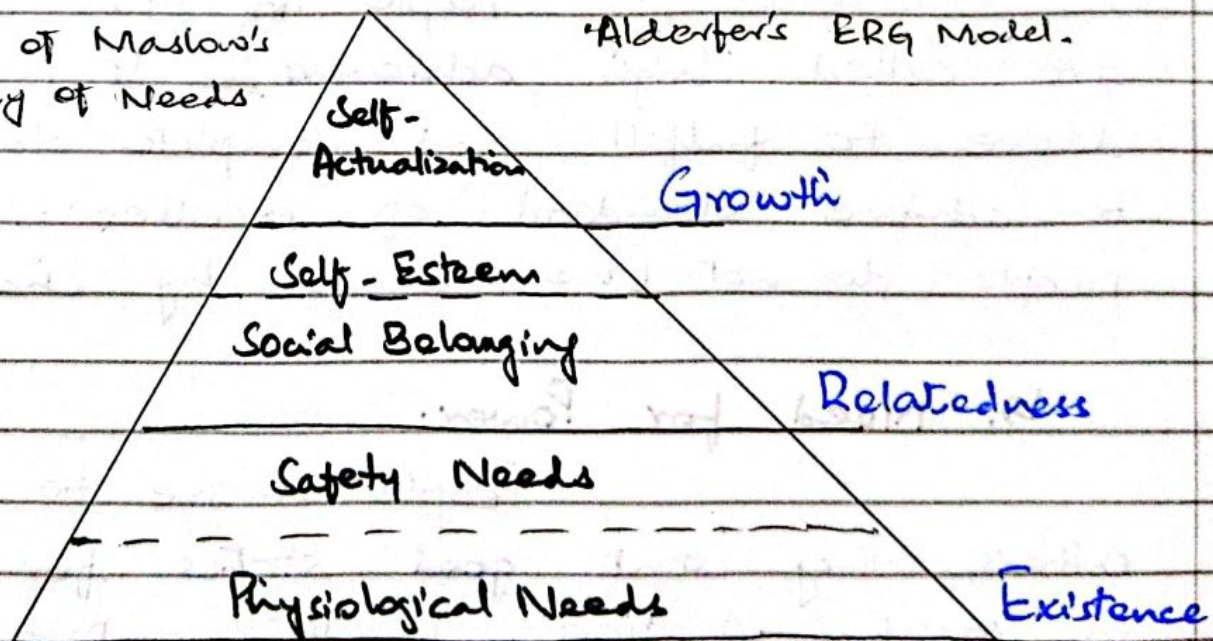 of Maslow's
of Needs
Alderfer's ERG Model.
Self-
Actualization
Growth
Self-Esteem
Social Belonging
Relatedness
Safety Needs
Physiological Needs
Existence